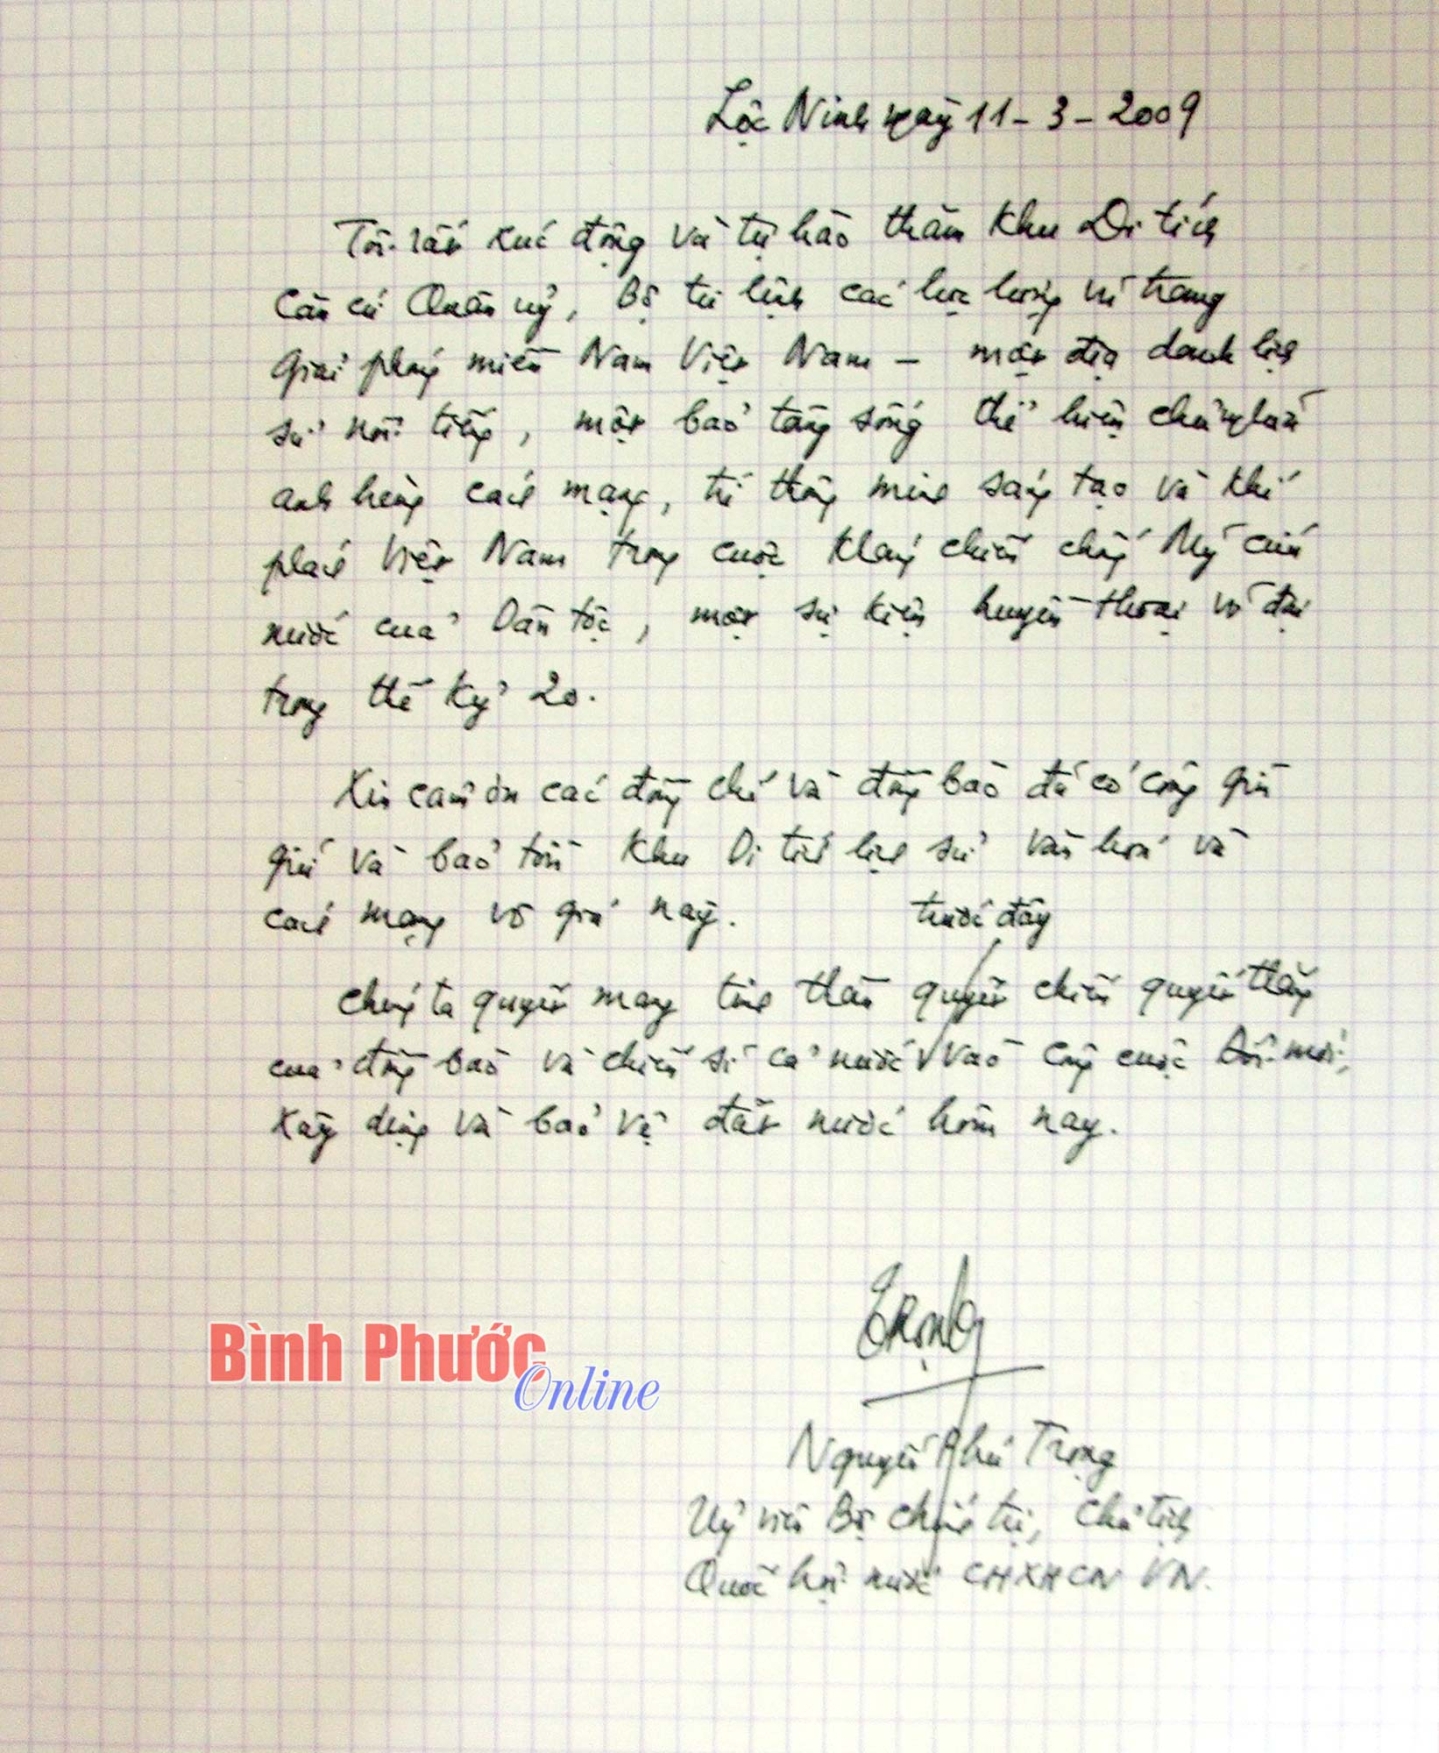 Lộc Ninh ngày 11-3-2009
Tôi rất xúc động và tự hào thăm Khu Di tích
Căn cứ Quân uỷ, Bộ tư lệnh các lực lượng vũ trang
Giải phóng miền Nam Việt Nam - một địa danh lịch
sử nổi tiếng, một bảo tàng sống thể hiện chủ nghĩa
anh hùng cách mạng, trí thông minh sáng tạo và khí
phách Việt Nam trong cuộc kháng chiến chống Mỹ cứu
nước của Dân tộc, một sự kiện huyền thoại vĩ đại
trong thế kỷ 20.
Xin cảm ơn các đồng chí và đồng bào đã có công gìn
giữ và bảo tồn Khu Di tích lịch sử văn hoá và
cách mạng vô giá này.
trước đây
Chúng ta quyết mang tinh thần quyết chiến quyết thắng
của đồng bào và chiến sĩ cả nước vào công cuộc Đổi mới,
xây dựng và bảo vệ đất nước hôm nay.
Trọng
Bình Phước
Online
Nguyễn Phú Trọng
Uỷ viên Bộ Chính trị, Chủ tịch
Quốc hội nước CHXHCN VN.